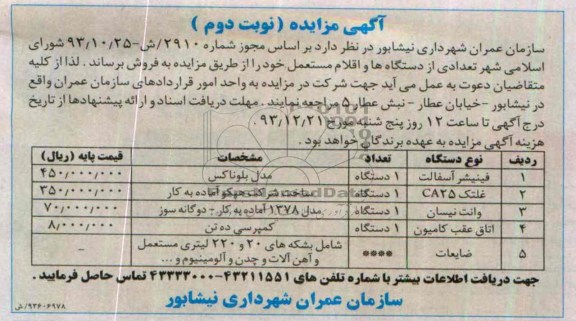 آگهی مزایده (نوبت دوم)
سازمان عمران شهرداری نیشابور در نظر دارد بر اساس مجوز شماره ۲۹۱۰/ش-۹۳,۱۰,۲۵ شورای
اسلامی شهر تعدادی از دستگاه ها و اقلام مستعمل خود را از طریق مزایده به فروش برساند . لذا از کلیه
متقاضیان دعوت به عمل می آید جهت شرکت در مزایده به واحد امور قراردادهای سازمان عمران واقع
در نیشابور -خیابان عطار - نبش عطار ۵ مراجعه نمایند . مهلت دریافت اسناد و ارائه پیشنهادها از تاریخ
درج آگهی تا ساعت ۱۲ روز پنج شنبه مورخ ۹۳,۱۲,۲۱ .
هزینه آگهی مزایده به عهده برندگان خواهد بود .
ردیف نوع دستگاه تعداد مشخصات قیمت پایه (ریال)
۱ فینیشر آسفالت ۱ دستگاه مدل بلوناکس ۴۵۰,۰۰۰,۰۰۰
۲ غلتک CA۲۵ ۱ دستگاه ساخت شرکت هپکو آماده به کار ۳۵۰,۰۰۰,۰۰۰
۳ وانت نیسان ۱ دستگاه مدل ۱۳۷۸ آماده به کار - دوگانه سوز ۷۰,۰۰۰,۰۰۰
۴ اتاق عقب کامیون ۱ دستگاه کمپرسی ده تن ۸,۰۰۰,۰۰۰
۵ ضایعات **** شامل بشکه های ۲۰ و ۲۲۰ لیتری مستعمل –
و آهن آلات و چدن و آلومینیوم و ...
جهت دریافت اطلاعات بیشتر با شماره تلفن های ۴۳۲۱۱۵۵۱-۴۳۳۳۳۰۰۰ تماس حاصل فرمایید .
سازمان عمران شهرداری نیشابور
۹۳۶۰۶۹۷۸/ش